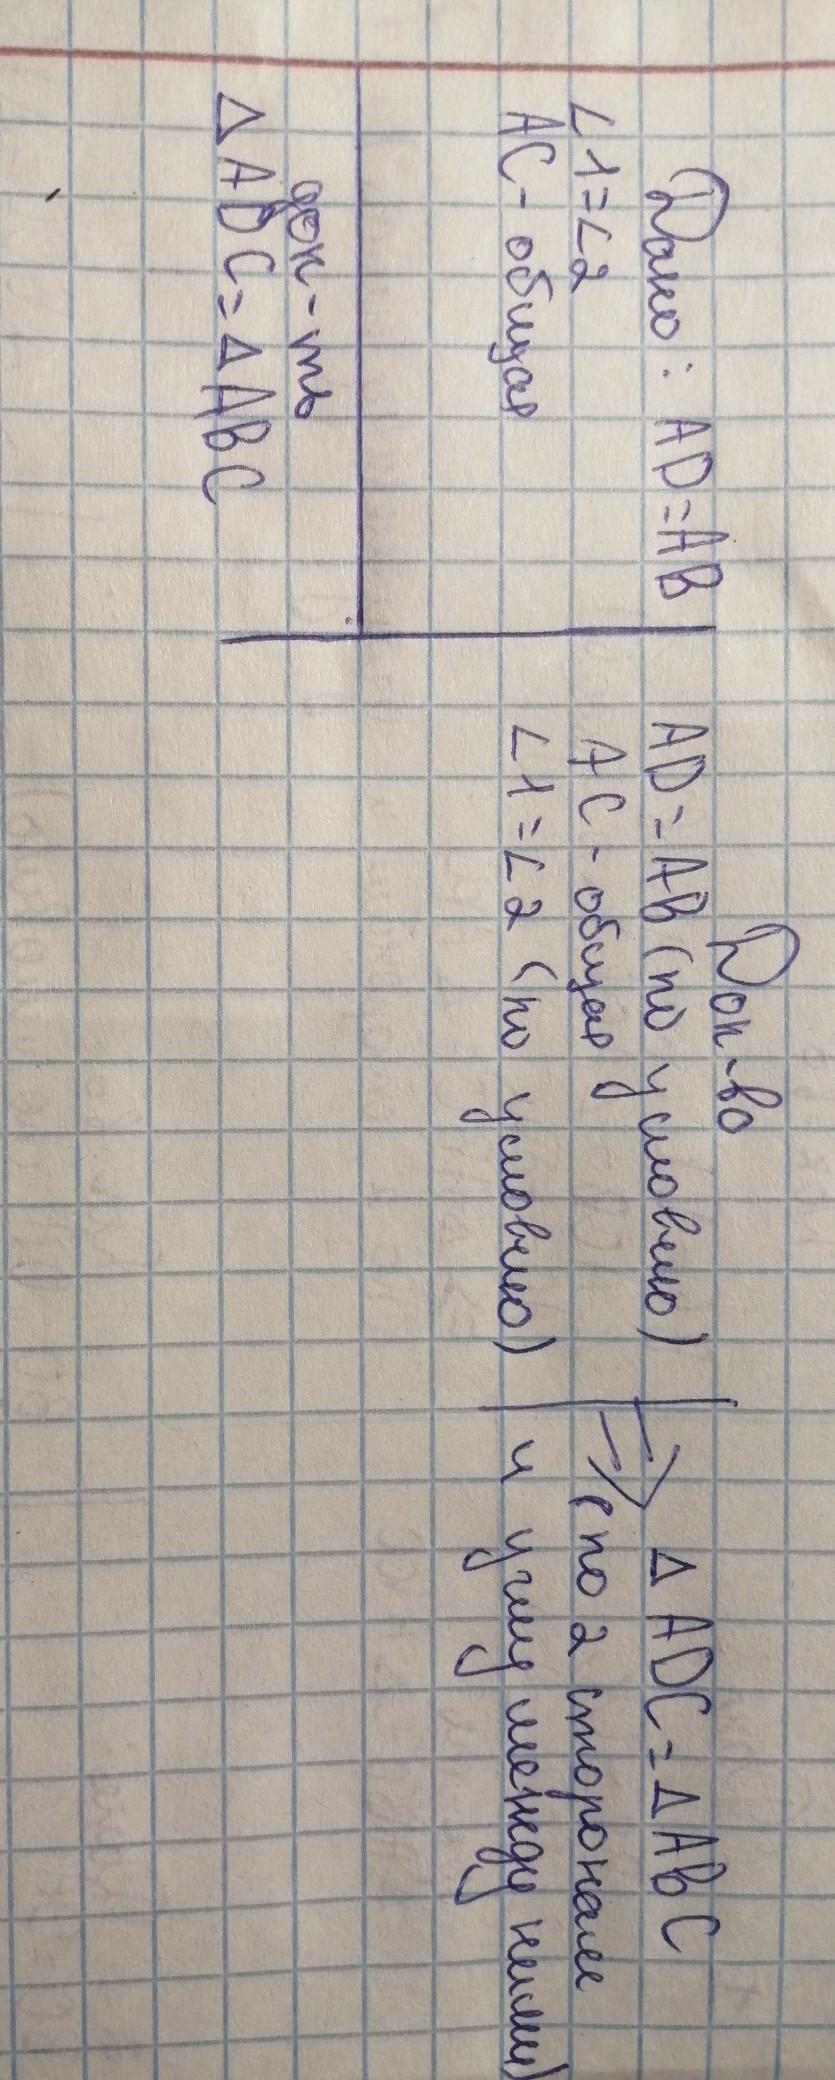 Дано: AD=AB
∠1=∠2
AC-общая
док-ть
Δ ADC=Δ ABC
Док-во
AD=AB (по условию)
AC-общая
∠1=∠2 (по условию)
⇒ Δ ADC=Δ ABC
(по 2 сторонам
и углу между ними)